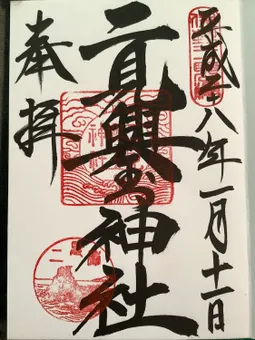 平成二十八年一月十一日
二見興玉神社
奉拝